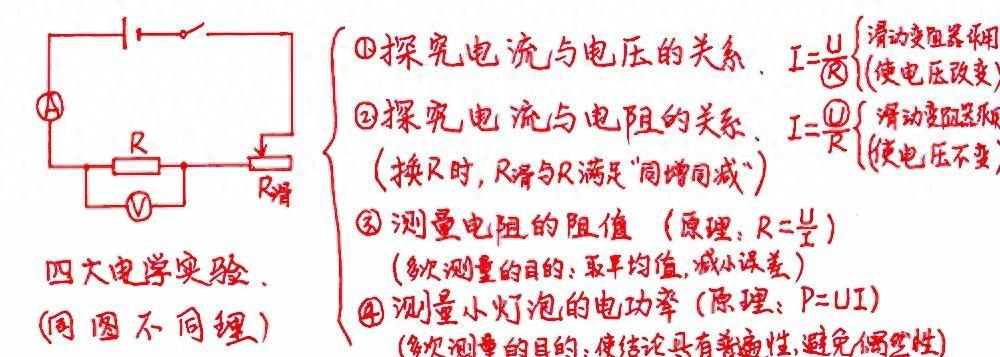 A
R
V
R滑
四大电学实验.
(同图不同理)
①探究电流与电压的关系. I=U/R {滑动变阻器作用
(使电压改变)
②探究电流与电阻的关系. I=U/R {滑动变阻器作用
(使电压不变)
(换R时,R滑与R满足"同增同减")
③测量电阻的阻值 (原理:R=U/I)
(多次测量的目的:取平均值,减小误差)
④测量小灯泡的电功率 (原理:P=UI)
(多次测量的目的:使结论具有普遍性,避免偶然性)